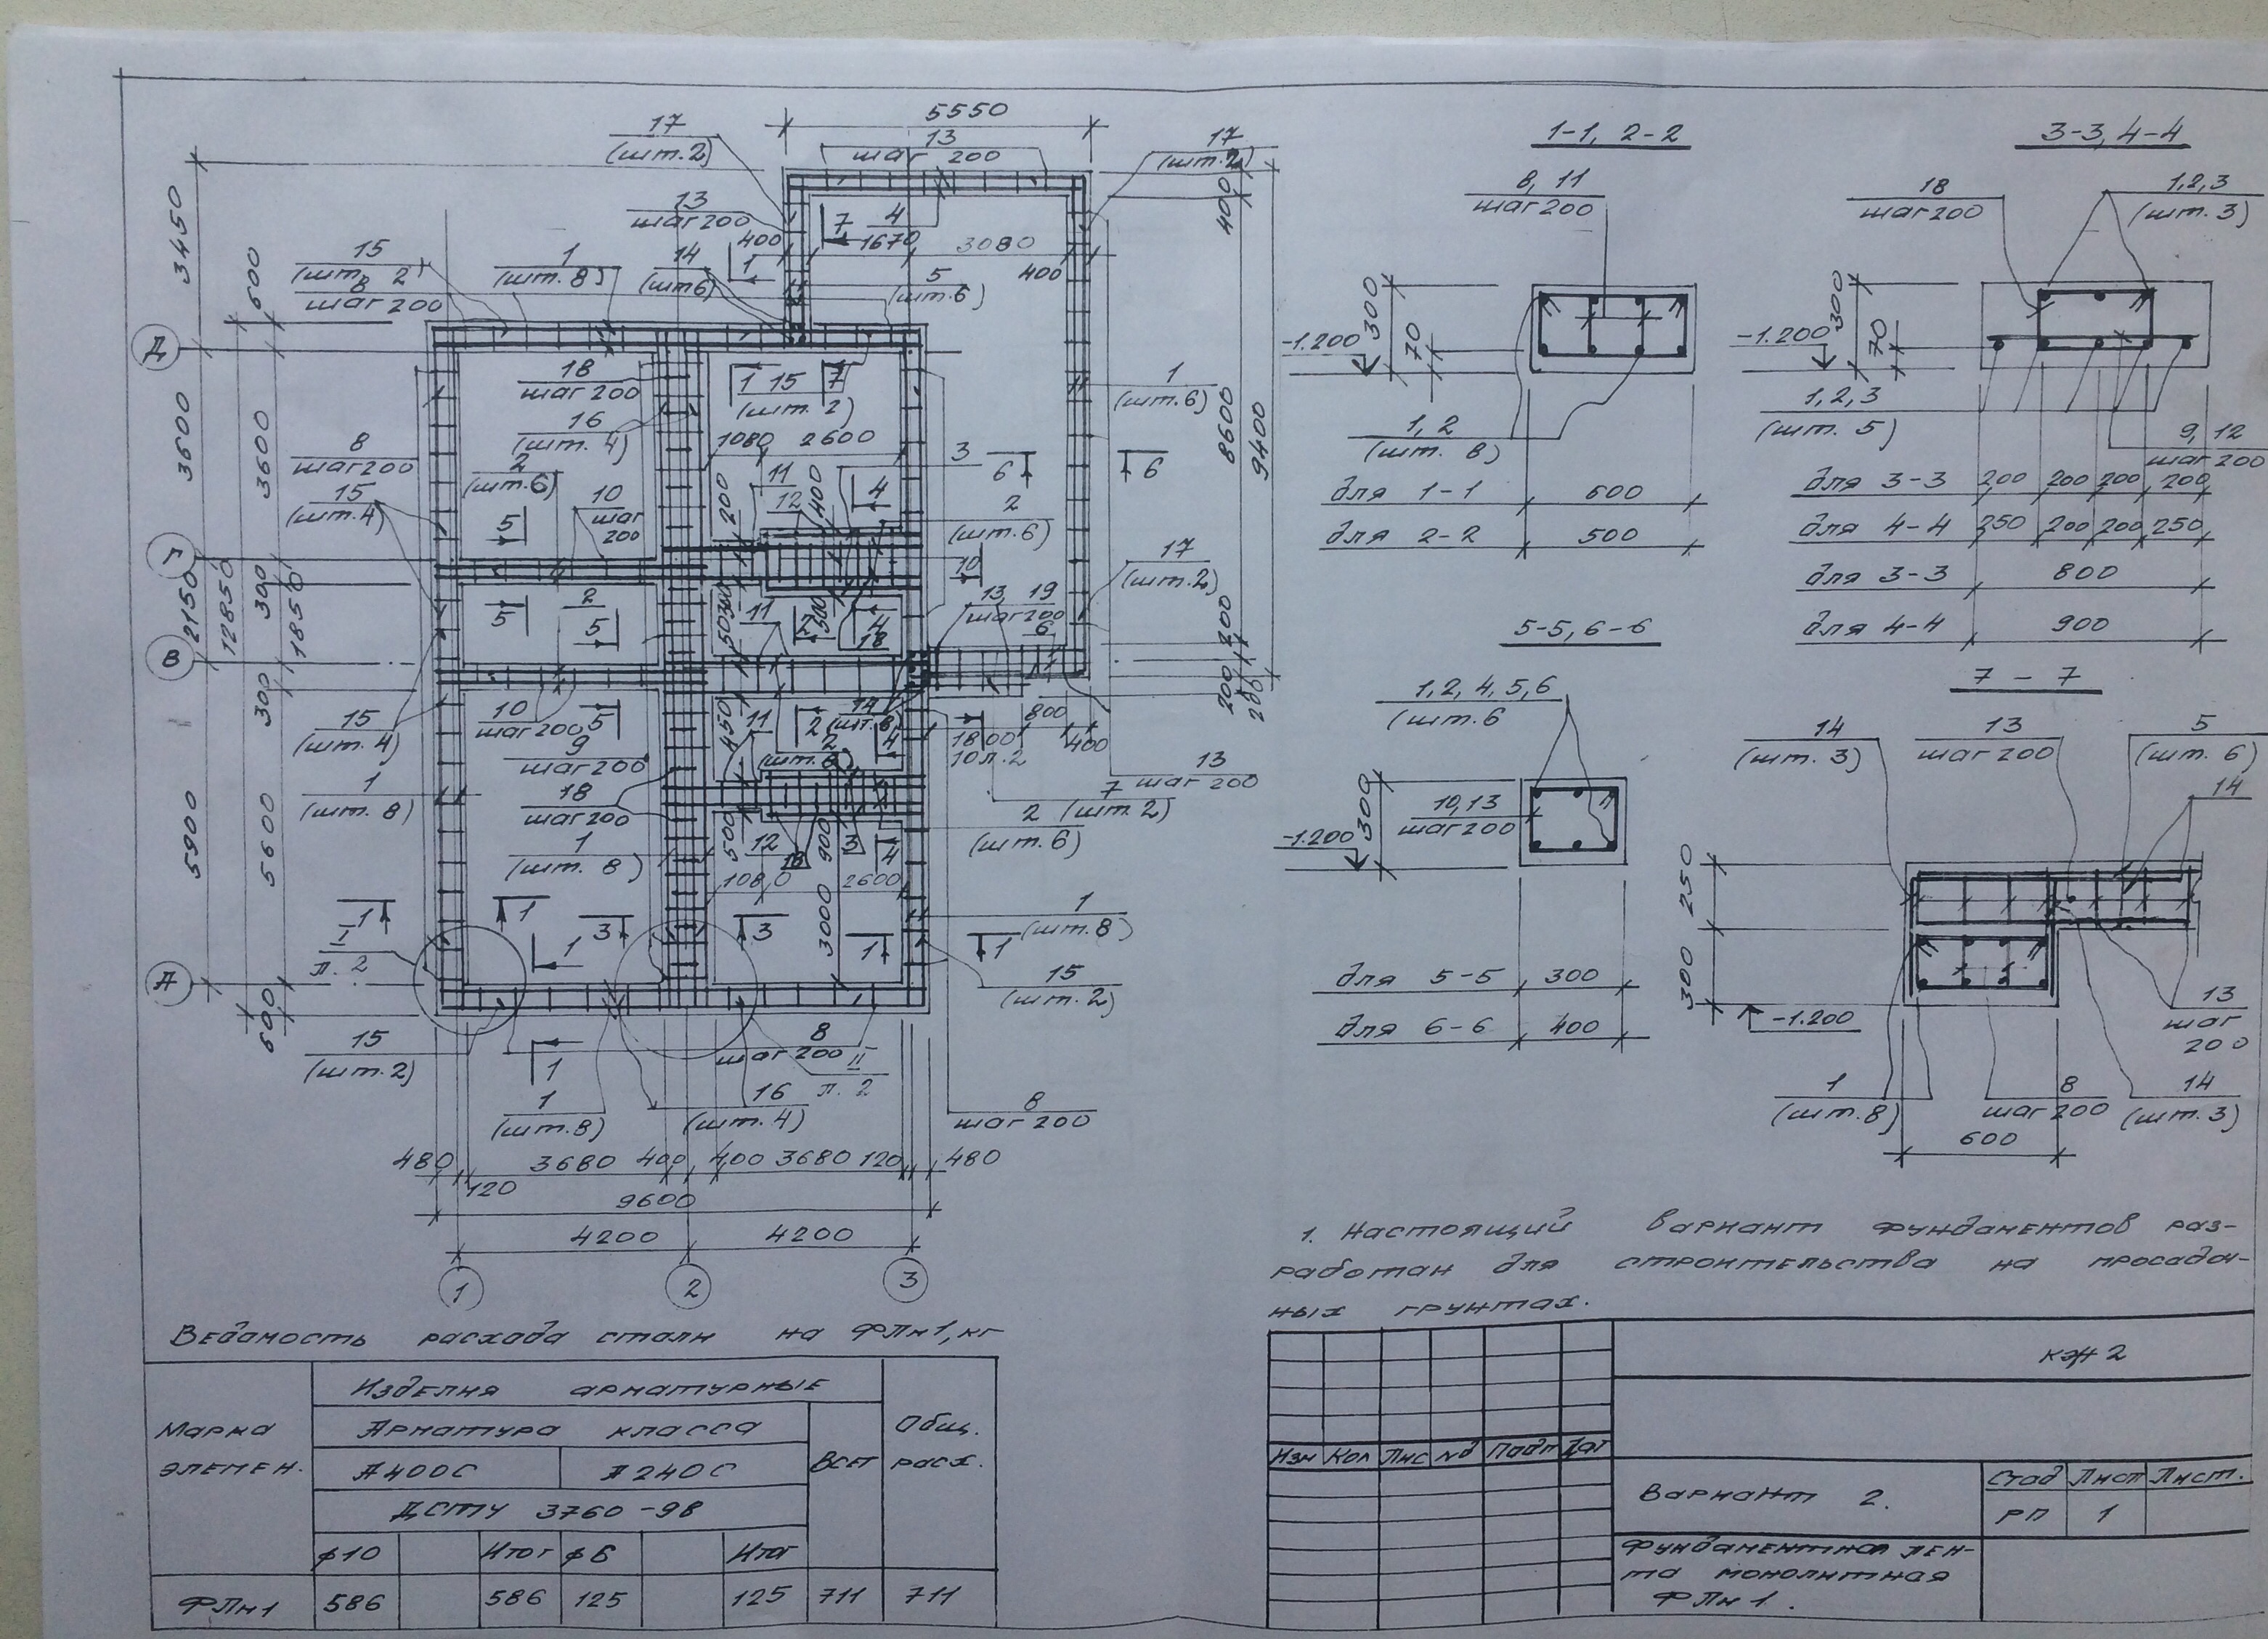 5550
17
(шт.2)
13
шаг 200
17
(шт.2)
13
шаг 200
400
7
4
1670
3080
400
400
3450
600
15
(шт. 2)
8
шаг 200
1
(шт. 8)
14
(шт6)
1
5
(шт.6)
Д
18
шаг 200
16
(шт. 4)
2
(шт.6)
10
шаг
200
5
1
15
7
(шт. 2)
1080
2600
1
(шт.6)
8600
9400
3600
3600
8
шаг200
15
(шт.4)
11
12
200
400
4
3
6
6
2
(шт.6)
10
17
(шт.2)
12150
12850
300
1850
В
5
2
5
11
500
4
18
13, 19
шаг200
6
200
200
200
300
15
(шт. 4)
10
шаг200
5
9
шаг 200
18
шаг 200
450
11
2
14
(шт.8)
2
(шт.6)
4
800
400
1800
10л.2
13
шаг 200
7
(шт.2)
2
(шт.6)
1
(шт. 8)
1
(шт. 8)
5900
5600
500
12
18
900
3
4
1080
2600
3000
1
I
л. 2
1
1
3
3
1
1
1
(шт.8)
15
(шт.2)
А
600
15
(шт.2)
1
8
шаг 200
II
л. 2
1
(шт.8)
16
(шт.4)
8
шаг 200
480
120
3680
400
400
3680
120
480
9600
4200
4200
1
2
3
1-1, 2-2
8, 11
шаг200
300
70
-1.200
1, 2
(шт. 8)
для 1-1 600
для 2-2 500
3-3, 4-4
18
шаг200
1,2,3
(шт. 3)
300
70
-1.200
1, 2, 3
(шт. 5)
9, 12
шаг 200
для 3-3 200 200 200 200
для 4-4 250 200 200 250
для 3-3 800
для 4-4 900
5-5, 6-6
1, 2, 4, 5, 6
(шт.6
300
10,13
шаг200
-1.200
для 5-5 300
для 6-6 400
7 - 7
14
(шт. 3)
13
шаг 200
5
(шт. 6)
14
250
300
-1.200
13
шаг
200
1
(шт.8)
8
шаг 200
14
(шт.3)
600
1. Настоящий вариант фундаментов раз-
работан для строительства на просадоч-
ных грунтах.
Ведомость расхода стали на ФЛн1, кг
Марка
элемен.
Изделия арматурные
Арматура класса
А400С
А240С
ДСТУ 3760-98
Всег
Общ.
расх.
ф10 Итог ф6 Итог
ФЛн1 586 586 125 125 711 711
КЖ 2
Изм Кол Лис №д Подп Дат
Вариант 2.
Стад Лист Лист.
РП 1
Фундаментная лен-
та монолитная
ФЛн 1.